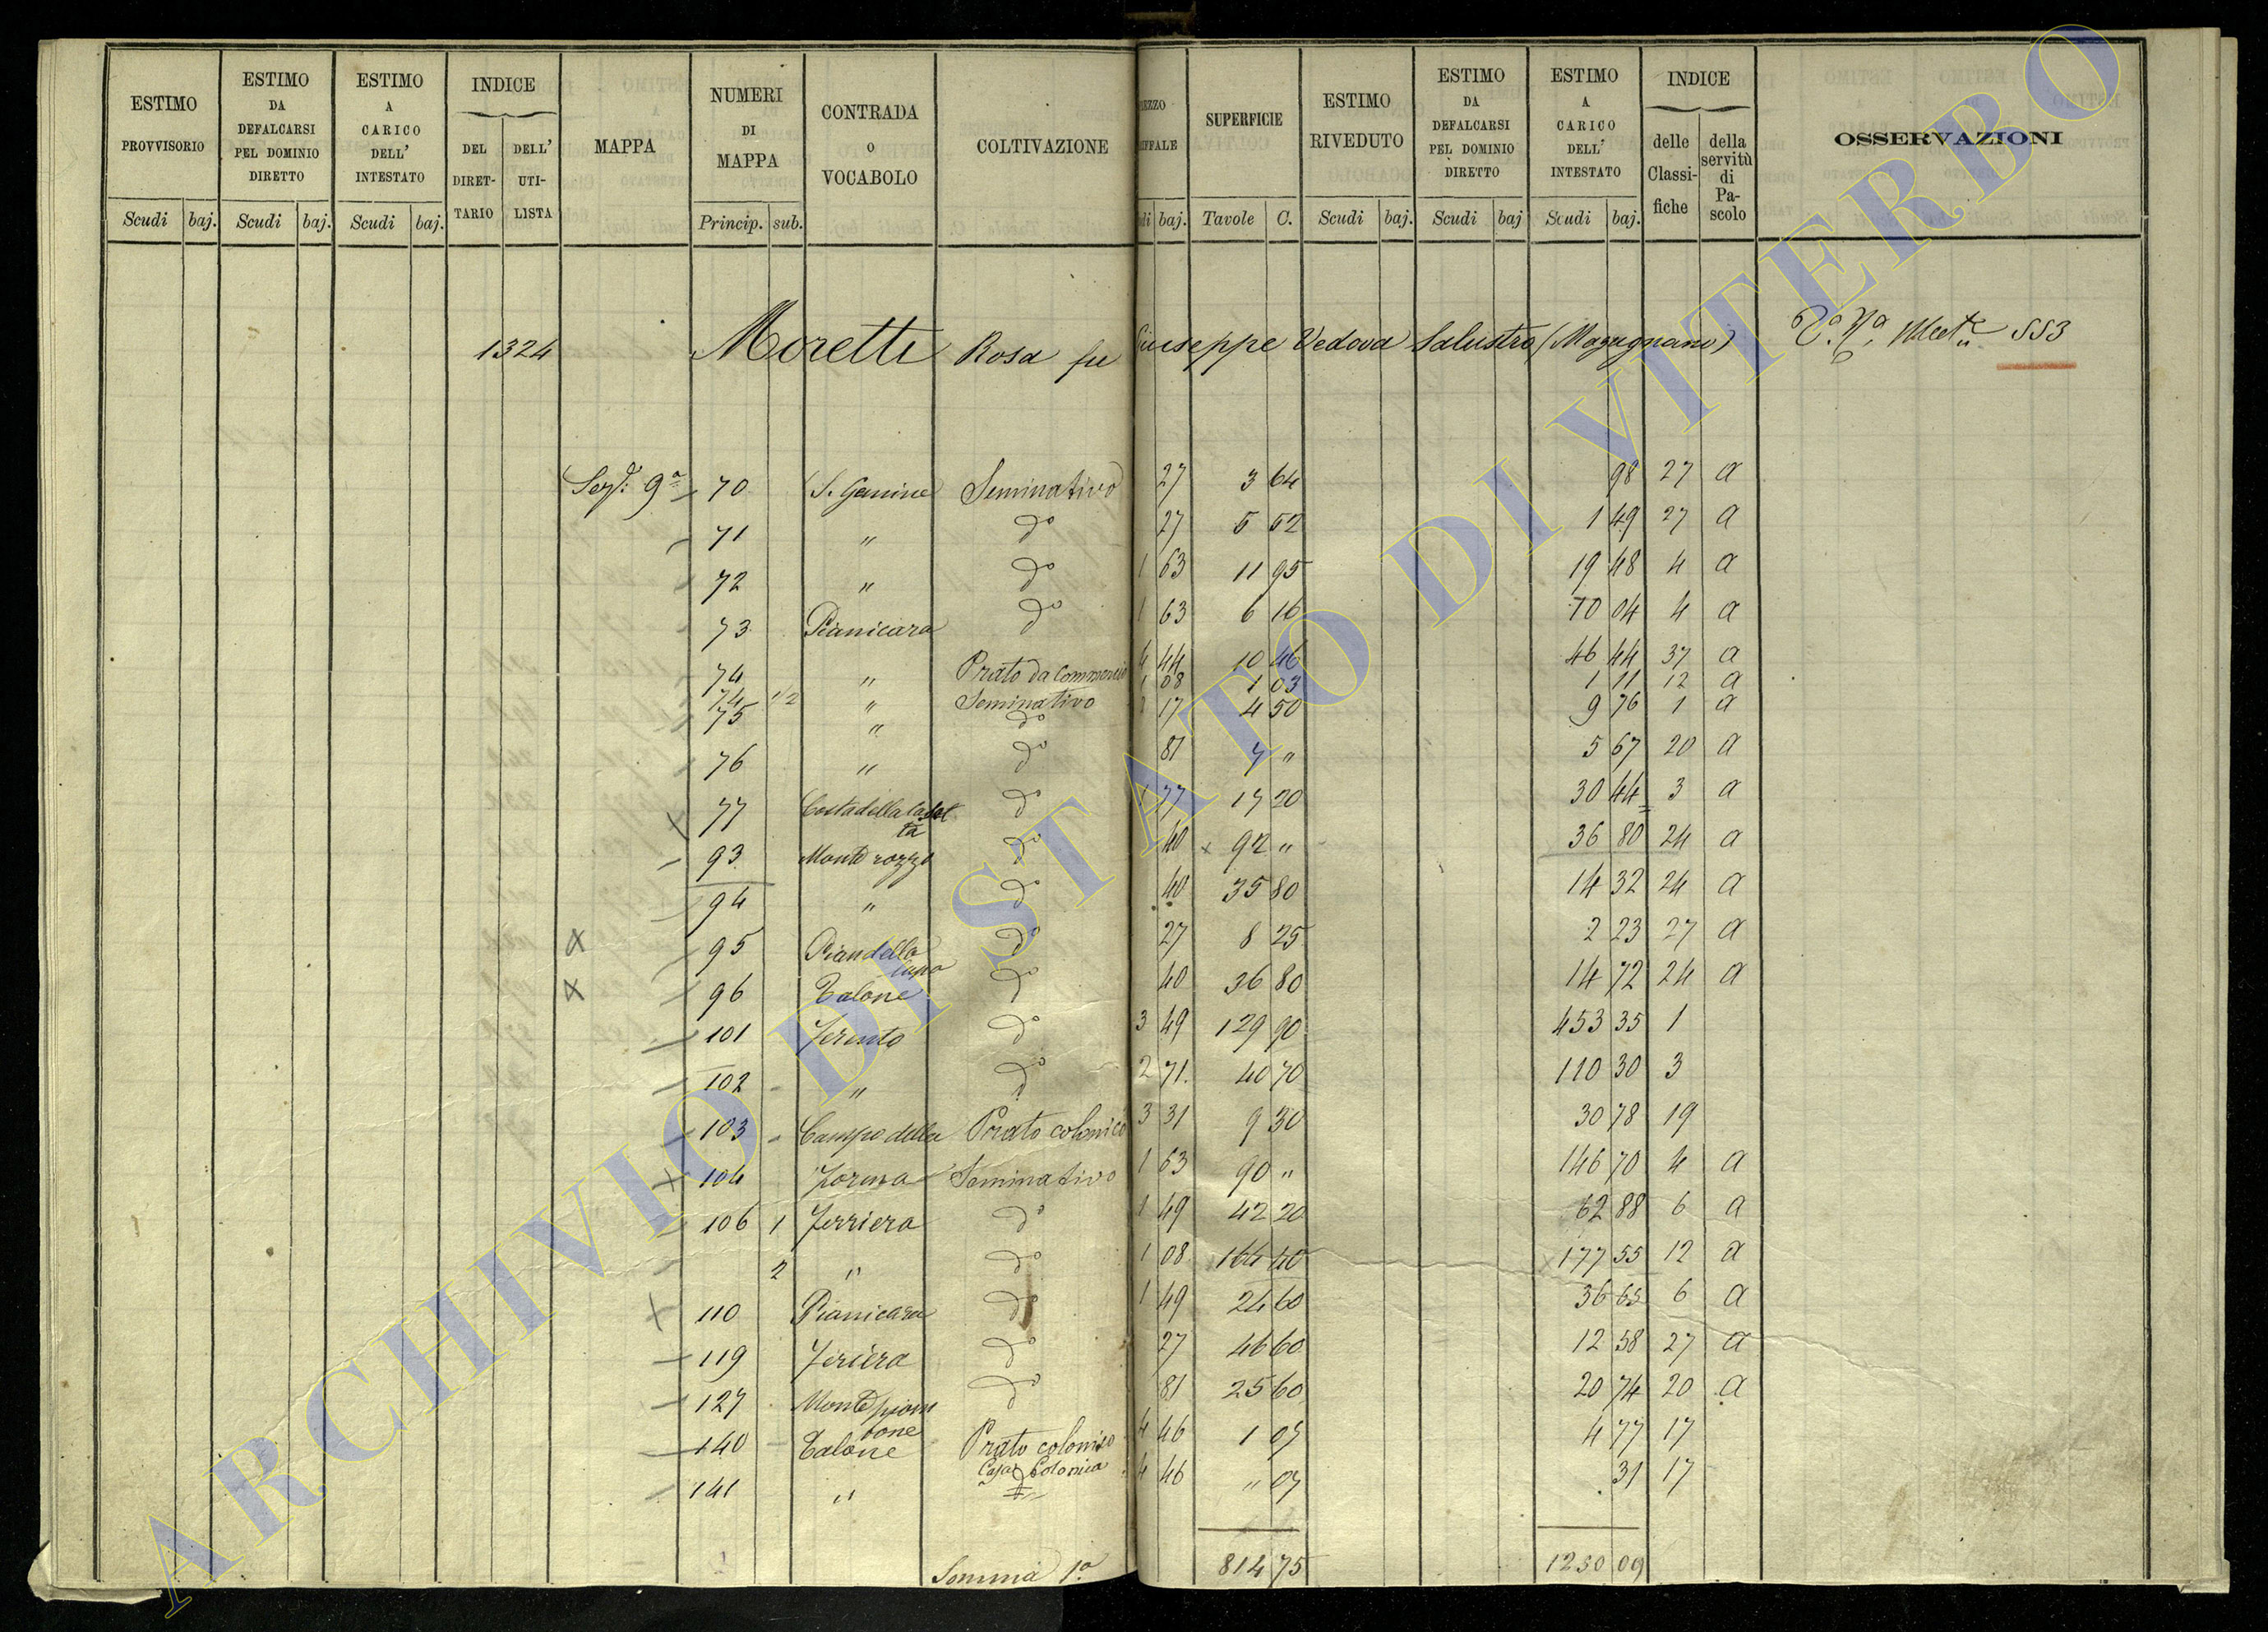 ESTIMO PROVVISORIO | ESTIMO DA DEFALCARSI PEL DOMINIO DIRETTO | ESTIMO A CARICO DELL' INTESTATO | INDICE DEL DIRET-TARIO | DELL' UTI-LISTA | MAPPA | NUMERI DI MAPPA | CONTRADA O VOCABOLO | COLTIVAZIONE | SUPERFICIE | ESTIMO RIVEDUTO | ESTIMO DA DEFALCARSI PEL DOMINIO DIRETTO | ESTIMO A CARICO DELL' INTESTATO | INDICE delle Classi-fiche | della servitù di Pa-scolo | OSSERVAZIONI
Scudi baj. Scudi baj. Scudi baj. Princip. sub. baj. Tavole C. Scudi baj. Scudi baj Scudi baj.
1324 Moretti Rosa fu Giuseppe Vedova Salustro (Magugnano) 553
Sez. 9a 70 S. Gemine Seminativo 27 3 64 98 27 a
71 " do 27 5 52 1 49 27 a
72 " do 1 63 11 95 19 48 4 a
73 Pianicara do 1 63 6 16 10 04 4 a
74 " Prato da commercio 4 44 10 46 46 44 37 a
74 1/2 " Seminativo 1 08 1 03 1 11 12 a
75 " do 2 17 4 50 9 76 1 a
76 " do 81 7 " 5 67 20 a
77 Costa della do 1 77 17 20 30 44 3 a
93 Monte rozzo do 40 92 " 36 80 24 a
94 " do 40 35 80 14 32 24 a
95 Pian della do 27 8 25 2 23 27 a
96 Talone do 40 36 80 14 72 24 a
101 Ferento do 3 49 129 90 453 35 1
102 " do 2 71 40 70 110 30 3
103 Campo della Prato colonico 3 31 9 30 30 78 19
104 Forma Seminativo 1 63 90 " 146 70 4 a
106 1 Ferriera do 1 49 42 20 62 88 6 a
2 " do 1 08 164 40 177 55 12 a
110 Pianicara do 1 49 24 60 36 65 6 a
119 Feriera do 27 46 60 12 58 27 a
127 Monte piom bone do 81 25 60 20 74 20 a
140 Talone Prato colonico 4 46 1 07 4 77 17
141 " Casa Colonica 4 46 " 07 31 17
Somma 1a 814 75 1230 09
ARCHIVIO DI STATO DI VITERBO